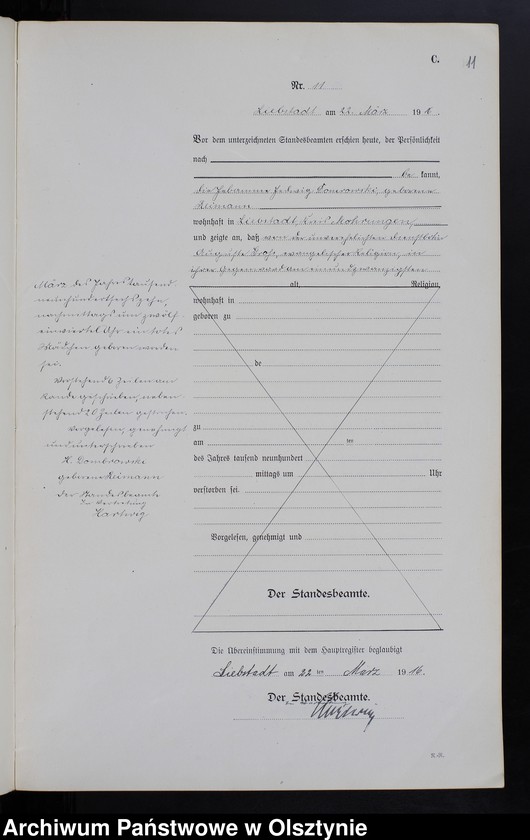 C.
11
Nr. 11
Liebstadt am 22. März 1916.
Vor dem unterzeichneten Standesbeamten erschien heute, der Persönlichkeit
nach
be kannt,
die Hebamme Hedwig Dombrowski, geborene
Reimann
wohnhaft in Liebstadt, Kreis Mohrungen,
und zeigte an, daß von der unverehelichten Dienstbotin
Auguste evangelischer Religion, in
ihrer Gegenwart am einundzwanzigsten
alt, Religion,
wohnhaft in
geboren zu
de
zu
am ten
des Jahres tausend neunhundert
mittags um Uhr
verstorben sei.
Vorgelesen, genehmigt und
Der Standesbeamte.
März des Jahres tausend
neunhundertsechszehn,
nachmittags um zwölf
einviertel Uhr ein totes
Mädchen geboren worden
sei.
Vorstehend 6 Zeilen am
Rande geschrieben, neben-
stehend 20 Zeilen gestrichen.
Vorgelesen, genehmigt
und unterschrieben
H. Dombrowski
geborene Reimann
Der Standesbeamte
In Vertretung
Hartwig
Die Übereinstimmung mit dem Hauptregister beglaubigt
Liebstadt am 22 ten März 1916.
Der Standesbeamte.
Hartwig
Archiwum Państwowe w Olsztynie